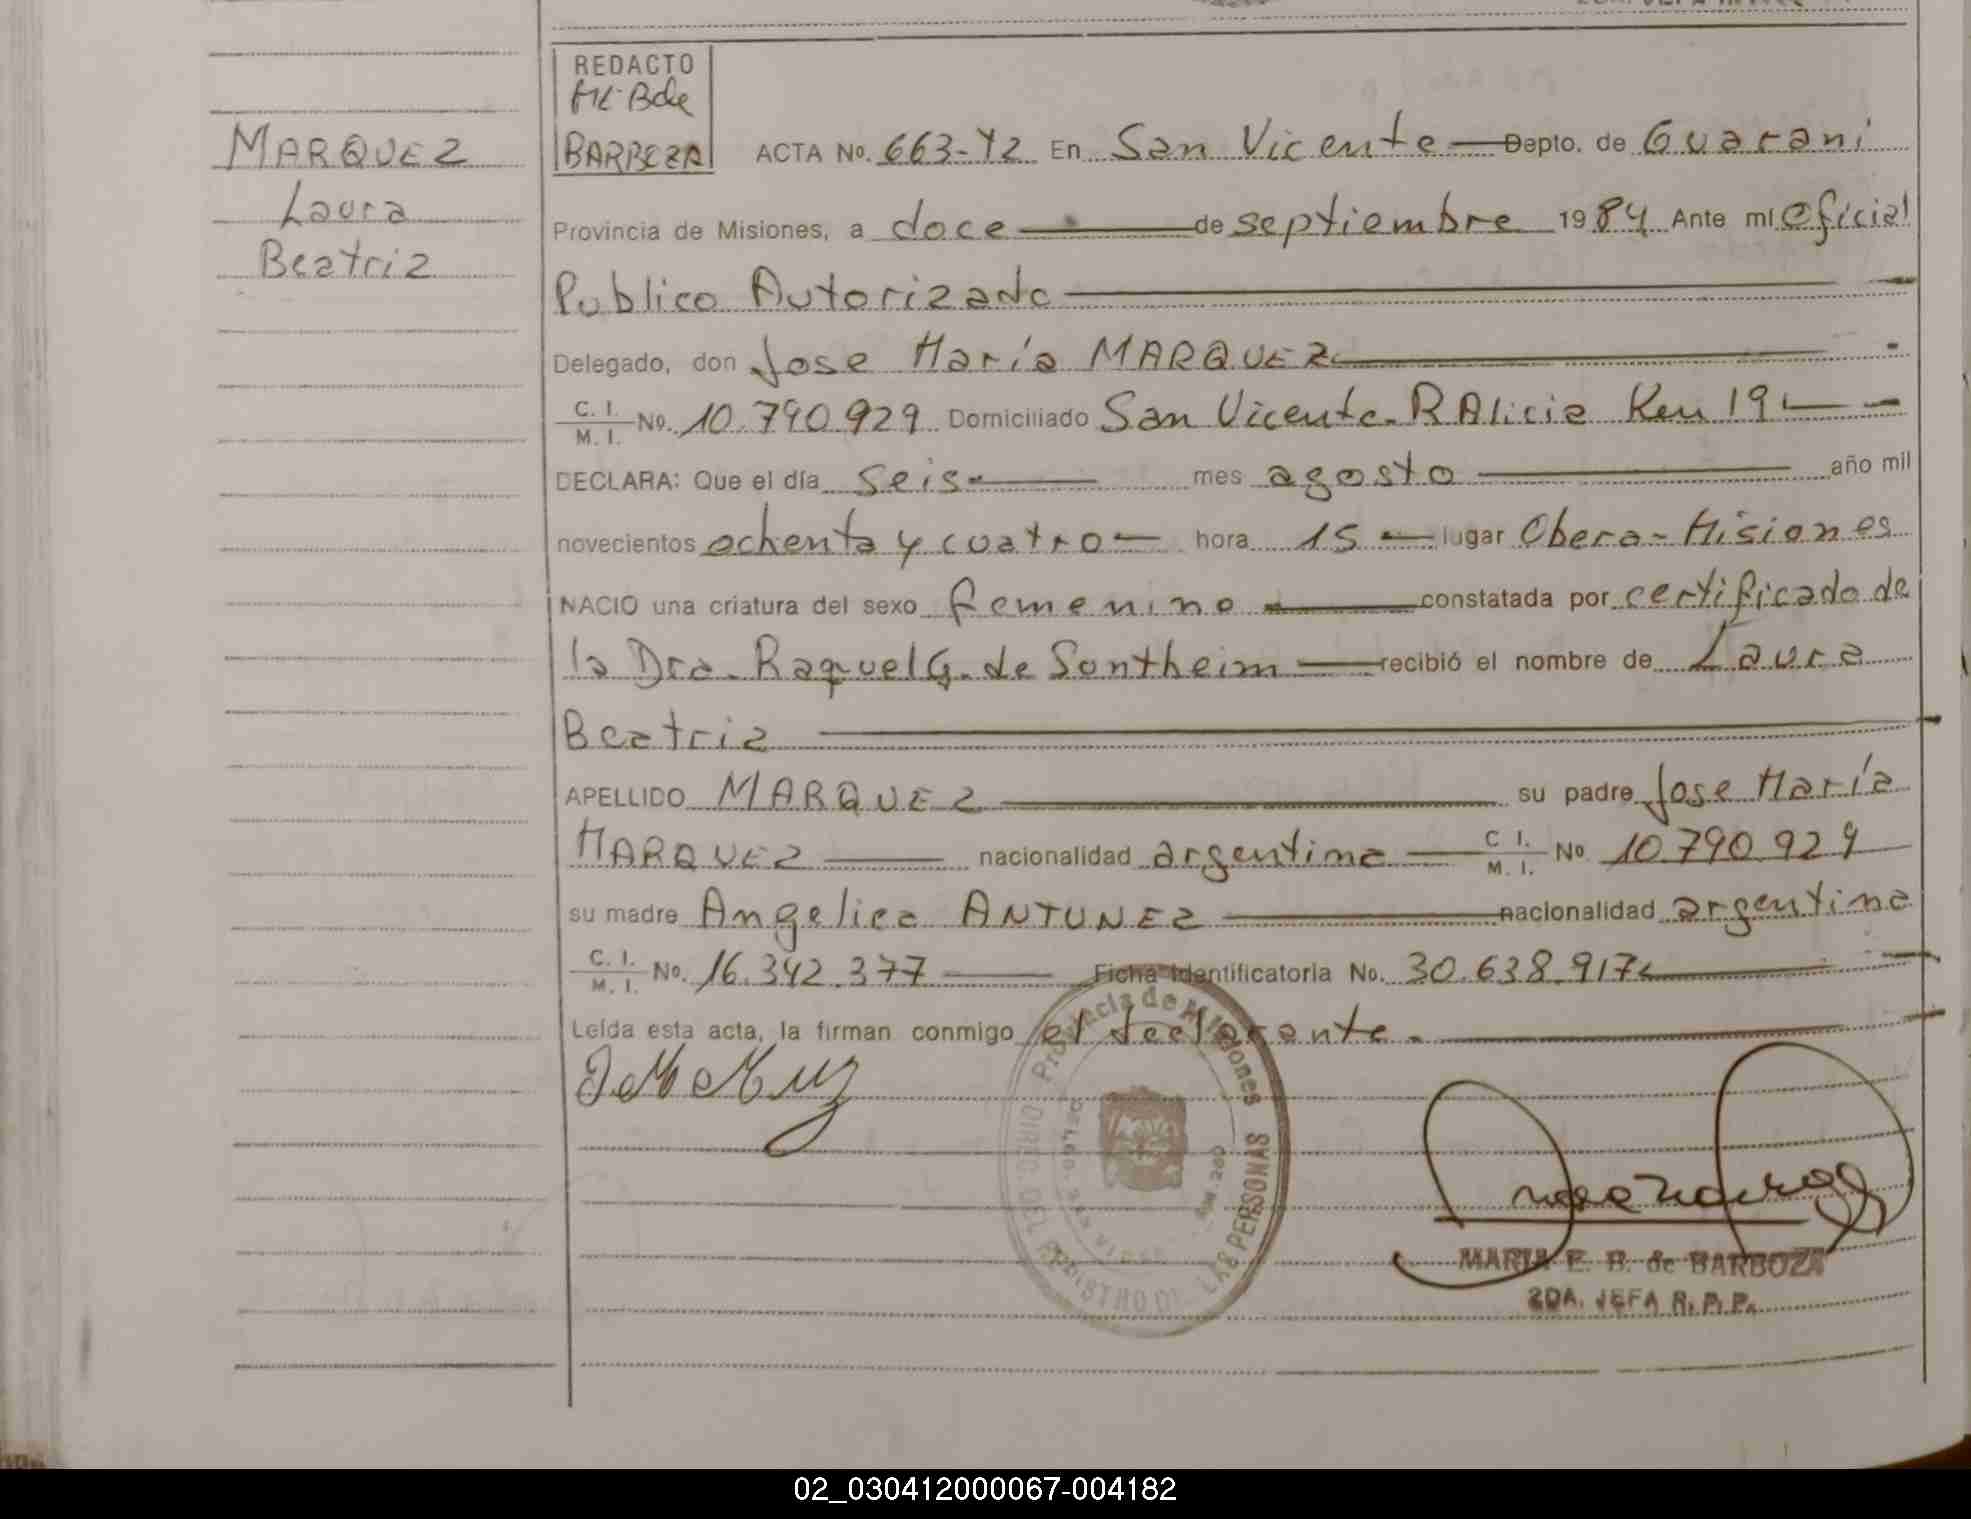 MARQUEZ
Laura
Beatriz
REDACTO
BARBOZA
ACTA No. 663-Y2 En San Vicente Depto. de Guaraní
Provincia de Misiones, a doce de septiembre 1984 Ante mí Oficial
Publico Autorizado
Delegado, don Jose María MARQUEZ
C. I.
M. I. No. 10.790.929 Domiciliado San Vicente. R Alicia Km 19
DECLARA: Que el día seis mes agosto año mil
novecientos ochenta y cuatro hora 15 lugar Obera - Misiones
NACIO una criatura del sexo femenino constatada por certificado de
la Dra. Raquel G. de Sontheim recibió el nombre de Laura
Beatriz
APELLIDO MARQUEZ su padre Jose María
MARQUEZ nacionalidad argentina C. I.
M. I. No 10.790.929
su madre Angelica ANTUNEZ nacionalidad argentina
C. I.
M. I. No. 16.342.377 Ficha Identificatoria No. 30.638.917
Leída esta acta, la firman conmigo el declarante.
Provincia de Misiones
DIREC. DEL REGISTRO DE LAS PERSONAS
MARIA E. B. de BARBOZA
2DA. JEFA R. P. P.
02_030412000067-004182